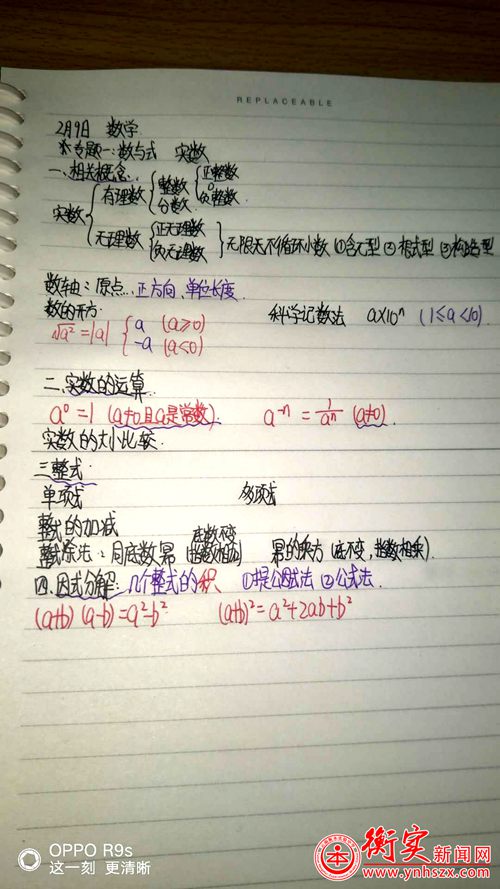 REPLACEABLE
2月9日 数学
※专题一:数与式 实数
一、相关概念
实数 有理数 整数 正整数 0 负整数
分数
无理数 正无理数 负无理数 无限不循环小数 ①含π型 ②根式型 ③构造型
数轴:原点、正方向、单位长度
数的开方: 科学记数法 a×10ⁿ (1≤a<10)
√a² = |a| a (a≥0)
-a (a<0)
二、实数的运算
a⁰=1 (a≠0且a是常数) a⁻ⁿ = 1/aⁿ (a≠0)
实数的大小比较
三整式
单项式 多项式
整式的加减
整式除法:同底数幂 (底数不变 指数相加) 幂的乘方 (底不变,指数相乘)
四、因式分解:几个整式的积 ①提公因式法 ②公式法
(a+b)(a-b)=a²-b² (a+b)²=a²+2ab+b²
OPPO R9s
这一刻 更清晰
衡实新闻网
www.ynhszx.com